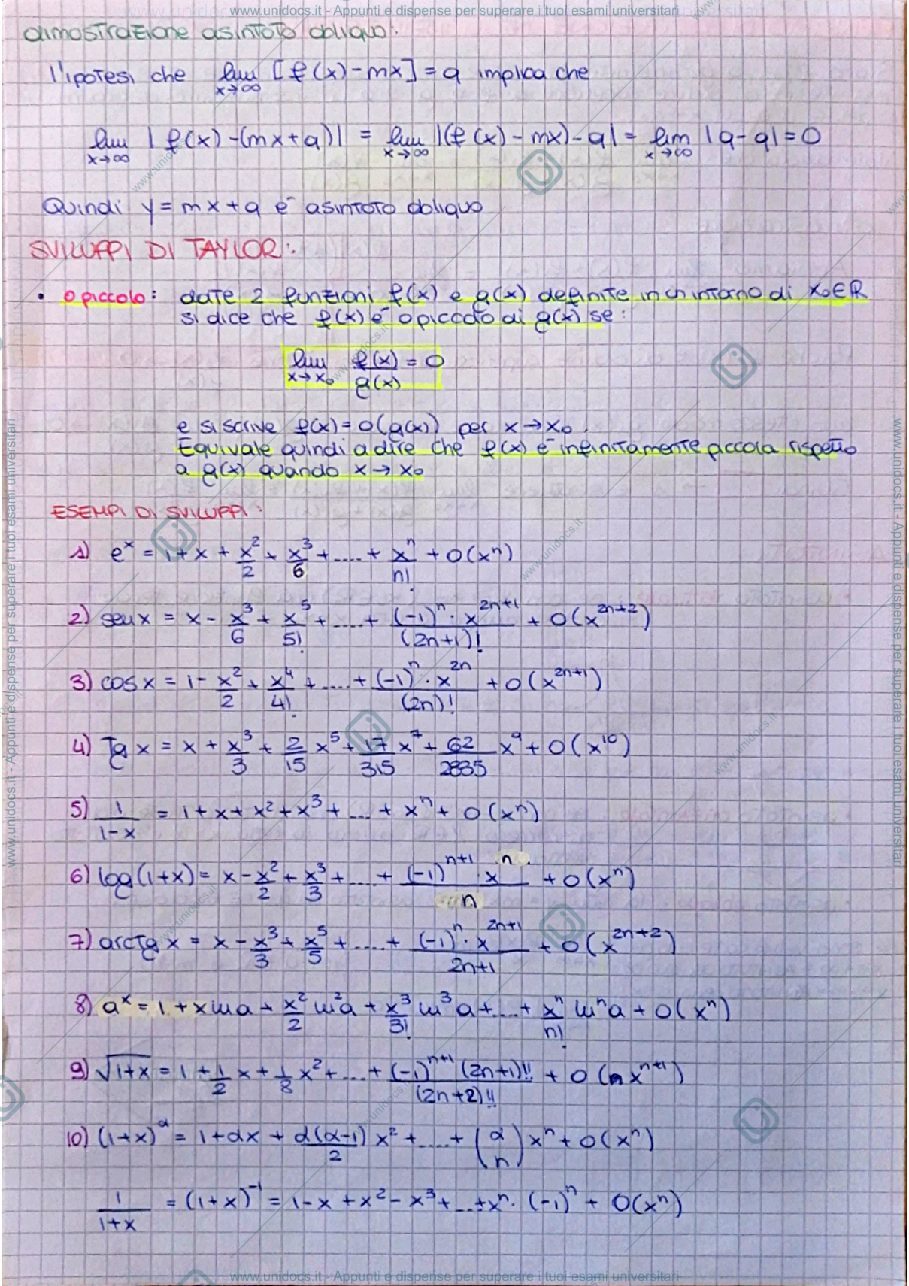 www.unidocs.it - Appunti e dispense per superare i tuoi esami universitari
dimostrazione asintoto obliquo:
l'ipotesi che lim x→∞ [f(x)-mx] = q implica che
lim x→∞ |f(x)-(mx+q)| = lim x→∞ |(f(x)-mx)-q| = lim x→∞ |q-q| = 0
Quindi y = mx+q è asintoto obliquo
SVILUPPI DI TAYLOR:
• o piccolo: date 2 funzioni f(x) e g(x) definite in ch intorno di x₀∈R
si dice che f(x) è o piccolo di g(x) se:
lim x→x₀ f(x)/g(x) = 0
e si scrive f(x) = o(g(x)) per x→x₀.
Equivale quindi a dire che f(x) è infinitamente piccola rispetto
a g(x) quando x→x₀
ESEMPI DI SVILUPPI:
1) eˣ = 1+x+x²/2+x³/6+....+xⁿ/n!+o(xⁿ)
2) sen x = x-x³/6+x⁵/5!+....+(-1)ⁿ·x²ⁿ⁺¹/(2n+1)!+o(x²ⁿ⁺²)
3) cos x = 1-x²/2+x⁴/4!+....+(-1)ⁿ·x²ⁿ/(2n)!+o(x²ⁿ⁺¹)
4) Tg x = x+x³/3+2/15 x⁵+17/315 x⁷+62/2835 x⁹+o(x¹⁰)
5) 1/(1-x) = 1+x+x²+x³+....+xⁿ+o(xⁿ)
6) log(1+x) = x-x²/2+x³/3+....+(-1)ⁿ⁺¹·xⁿ/n+o(xⁿ)
7) arctg x = x-x³/3+x⁵/5+....+(-1)ⁿ·x²ⁿ⁺¹/2n+1+o(x²ⁿ⁺²)
8) aˣ = 1+x ln a+x²/2 ln²a+x³/3! ln³a+...+xⁿ/n! lnⁿa+o(xⁿ)
9) √(1+x) = 1+1/2 x+1/8 x²+....+(-1)ⁿ⁺¹(2n+1)!!/(2n+2)!!+o(xⁿ⁺¹)
10) (1+x)^α = 1+αx+α(α-1)/2 x²+....+(α n)xⁿ+o(xⁿ)
1/(1+x) = (1+x)⁻¹ = 1-x+x²-x³+...+xⁿ·(-1)ⁿ+o(xⁿ)
www.unidocs.it - Appunti e dispense per superare i tuoi esami universitari
www.unidocs.it - Appunti e dispense per superare i tuoi esami universitari
www.unidocs.it - Appunti e dispense per superare i tuoi esami universitari